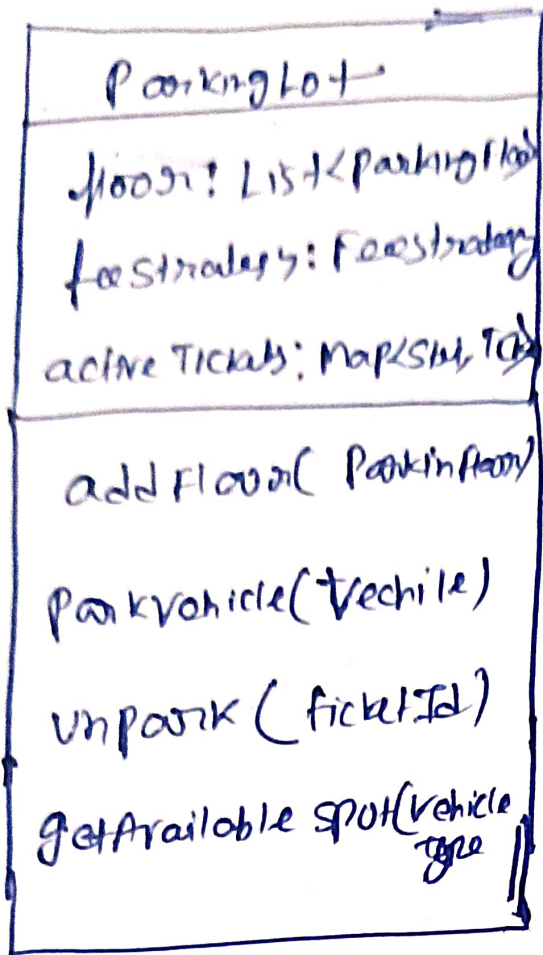 ParkingLot
floor: List<ParkingFloor>
feeStrategy: FeeStrategy
active Tickets: Map<Str, Tick>
addFloor( ParkinFloor)
ParkVehicle(Vechile)
unpark( ticketId)
getAvailable spot(vehicle
type